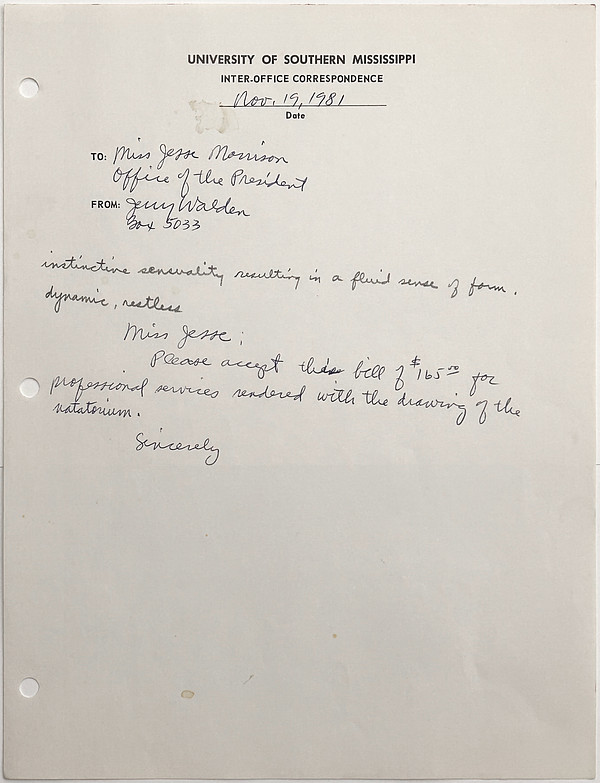 UNIVERSITY OF SOUTHERN MISSISSIPPI
INTER-OFFICE CORRESPONDENCE
Nov. 19, 1981
Date
TO: Miss Jesse Morrison
Office of the President
FROM: Jerry Walden
Box 5033
instinctive sensuality resulting in a fluid sense of form.
dynamic, restless
Miss Jesse;
Please accept this bill of $165.00 for
professional services rendered with the drawing of the
natatorium.
Sincerely